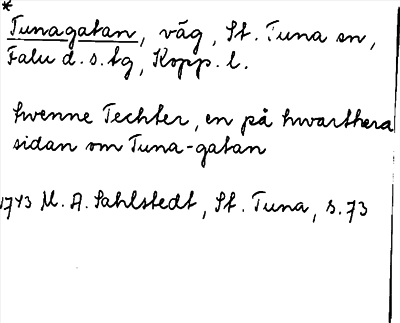 *
Tunagatan, väg, St. Tuna sn,
Falu d.s. tg, Kopp. l.
twenne Techter, en på hwarthera
sidan om Tuna-gatan
1743 M. A. Sahlstedt, St. Tuna, s. 73